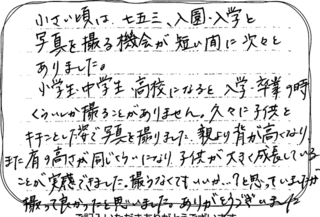 小さい頃は、七五三、入園・入学と
写真を撮る機会が短い間に次々と
ありました。
小学生・中学生 高校になると 入学・卒業の時
くらいしか撮ることがありません。久々に子供と
キチンとした学で写真を撮りました。親より背が高くなり、
また肩の高さが同じくらいになり 子供が大きく成長している
ことが実感できました。撮らなくてもいいか…?と思っていましたが
撮って良かったと思いました。ありがとうございました